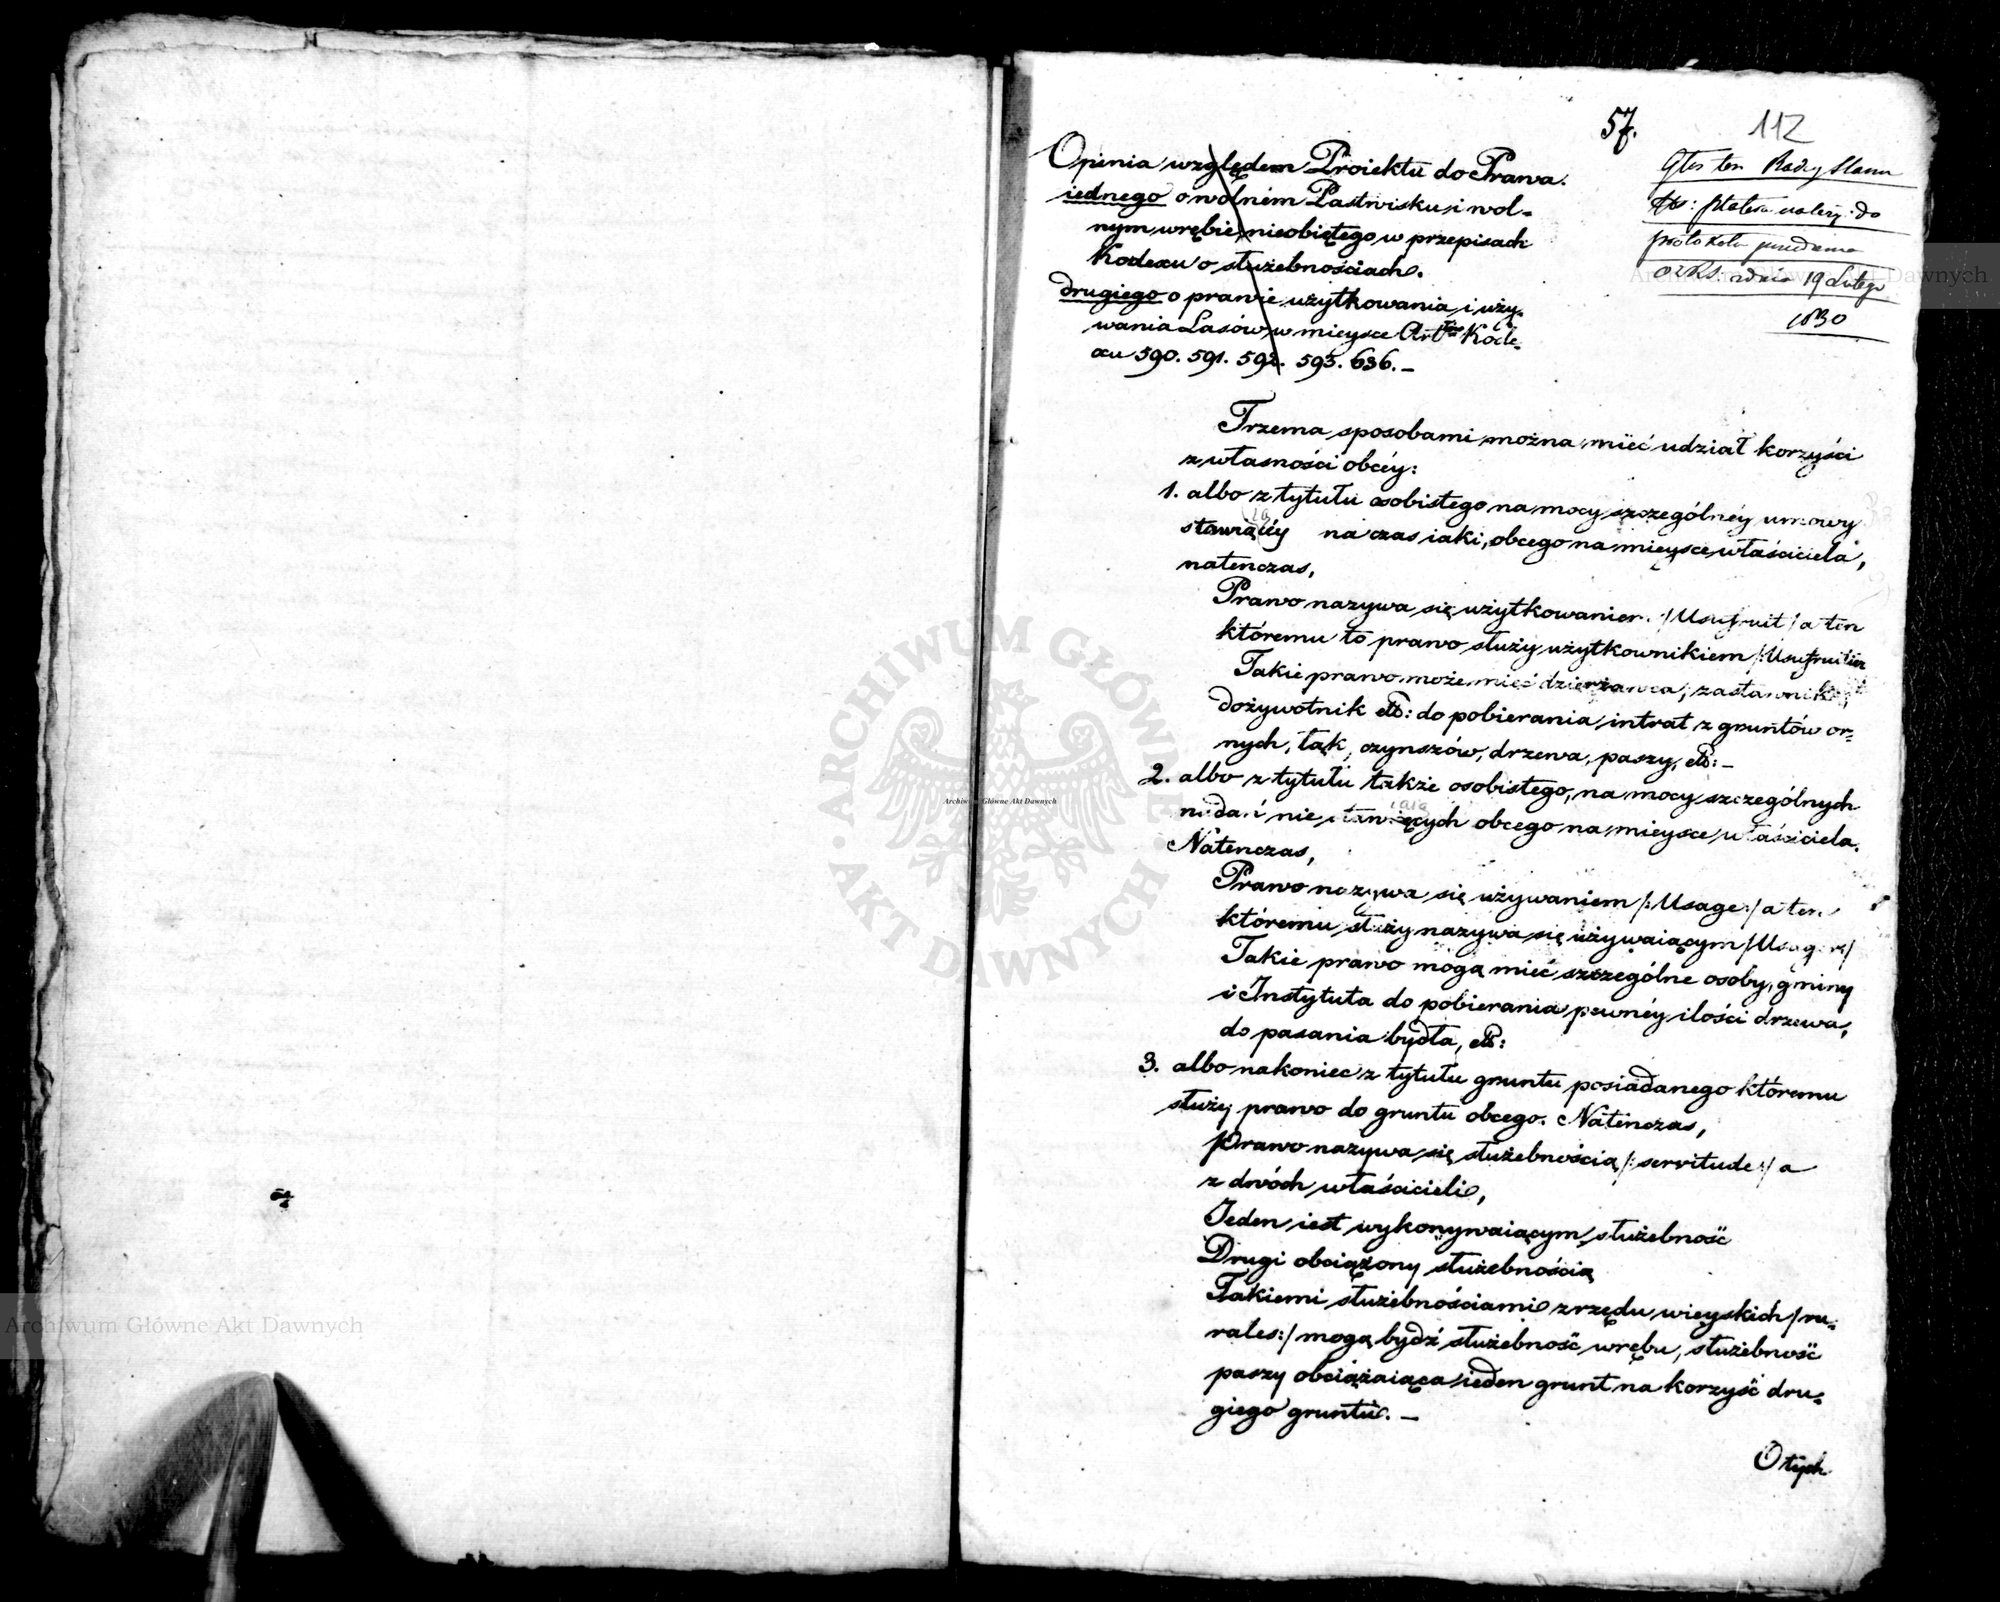 57.
112
Głos ten Rady Stanu
należy: do
protokołu posiedzenia
z dnia 19 Lutego
1830
Opinia względem Proiektu do Prawa.
iednego o wolném Pastwisku i wol=
nym wrębie nieobiętego w przepisach
Kodexu o służebnościach.
drugiego o prawie użytkowania i uży=
wania Lasów w mieysce Artłów Kode=
xu 590. 591. 592. 593. 636. —
Trzema sposobami można mieć udział korzyści
z własności obcéy:
1. albo z tytułu osobistego na mocy szczególnéy umowy
na czas iaki, obcego na mieysce właściciela,
natenczas,
Prawo nazywa się użytkowaniem /Usufruit/ a ten
któremu to prawo służy użytkownikiem /:Usufruitier
Takie prawo może mieć dzierżawca, zastawnik,
dożywotnik etc: do pobierania intrat z gruntów or=
nych, łąk, czynszów, drzewa, paszy, etc: —
2. albo z tytułu także osobistego, na mocy szczególnych
nadań nie obcego na mieysce właściciela.
Natenczas,
Prawo nazywa się używaniem /:Usage:/ a ten
któremu służy nazywa się używaiącym /Usager/
Takie prawo mogą mieć szczególne osoby, gminy
i Instytuta do pobierania pewnéy ilości drzewa,
do pasania bydła, etc:
3. albo nakoniec z tytułu gruntu posiadanego któremu
służy prawo do gruntu obcego. Natenczas,
Prawo nazywa się służebnością /:servitude:/ a
z dwóch właścicieli,
Jeden iest wykonywaiącym służebność
Drugi obciążony służebnością
Takiemi służebnościami z rzędu wieyskich /ru=
rales:/ mogą bydź służebność wrębu, służebność
paszy obciążaiąca ieden grunt na korzyść dru=
giego gruntu. —
O tych
Archiwum Główne Akt Dawnych
Archiwum Główne Akt Dawnych
ARCHIWUM GŁÓWNE AKT DAWNYCH
Archiwum Główne Akt Dawnych